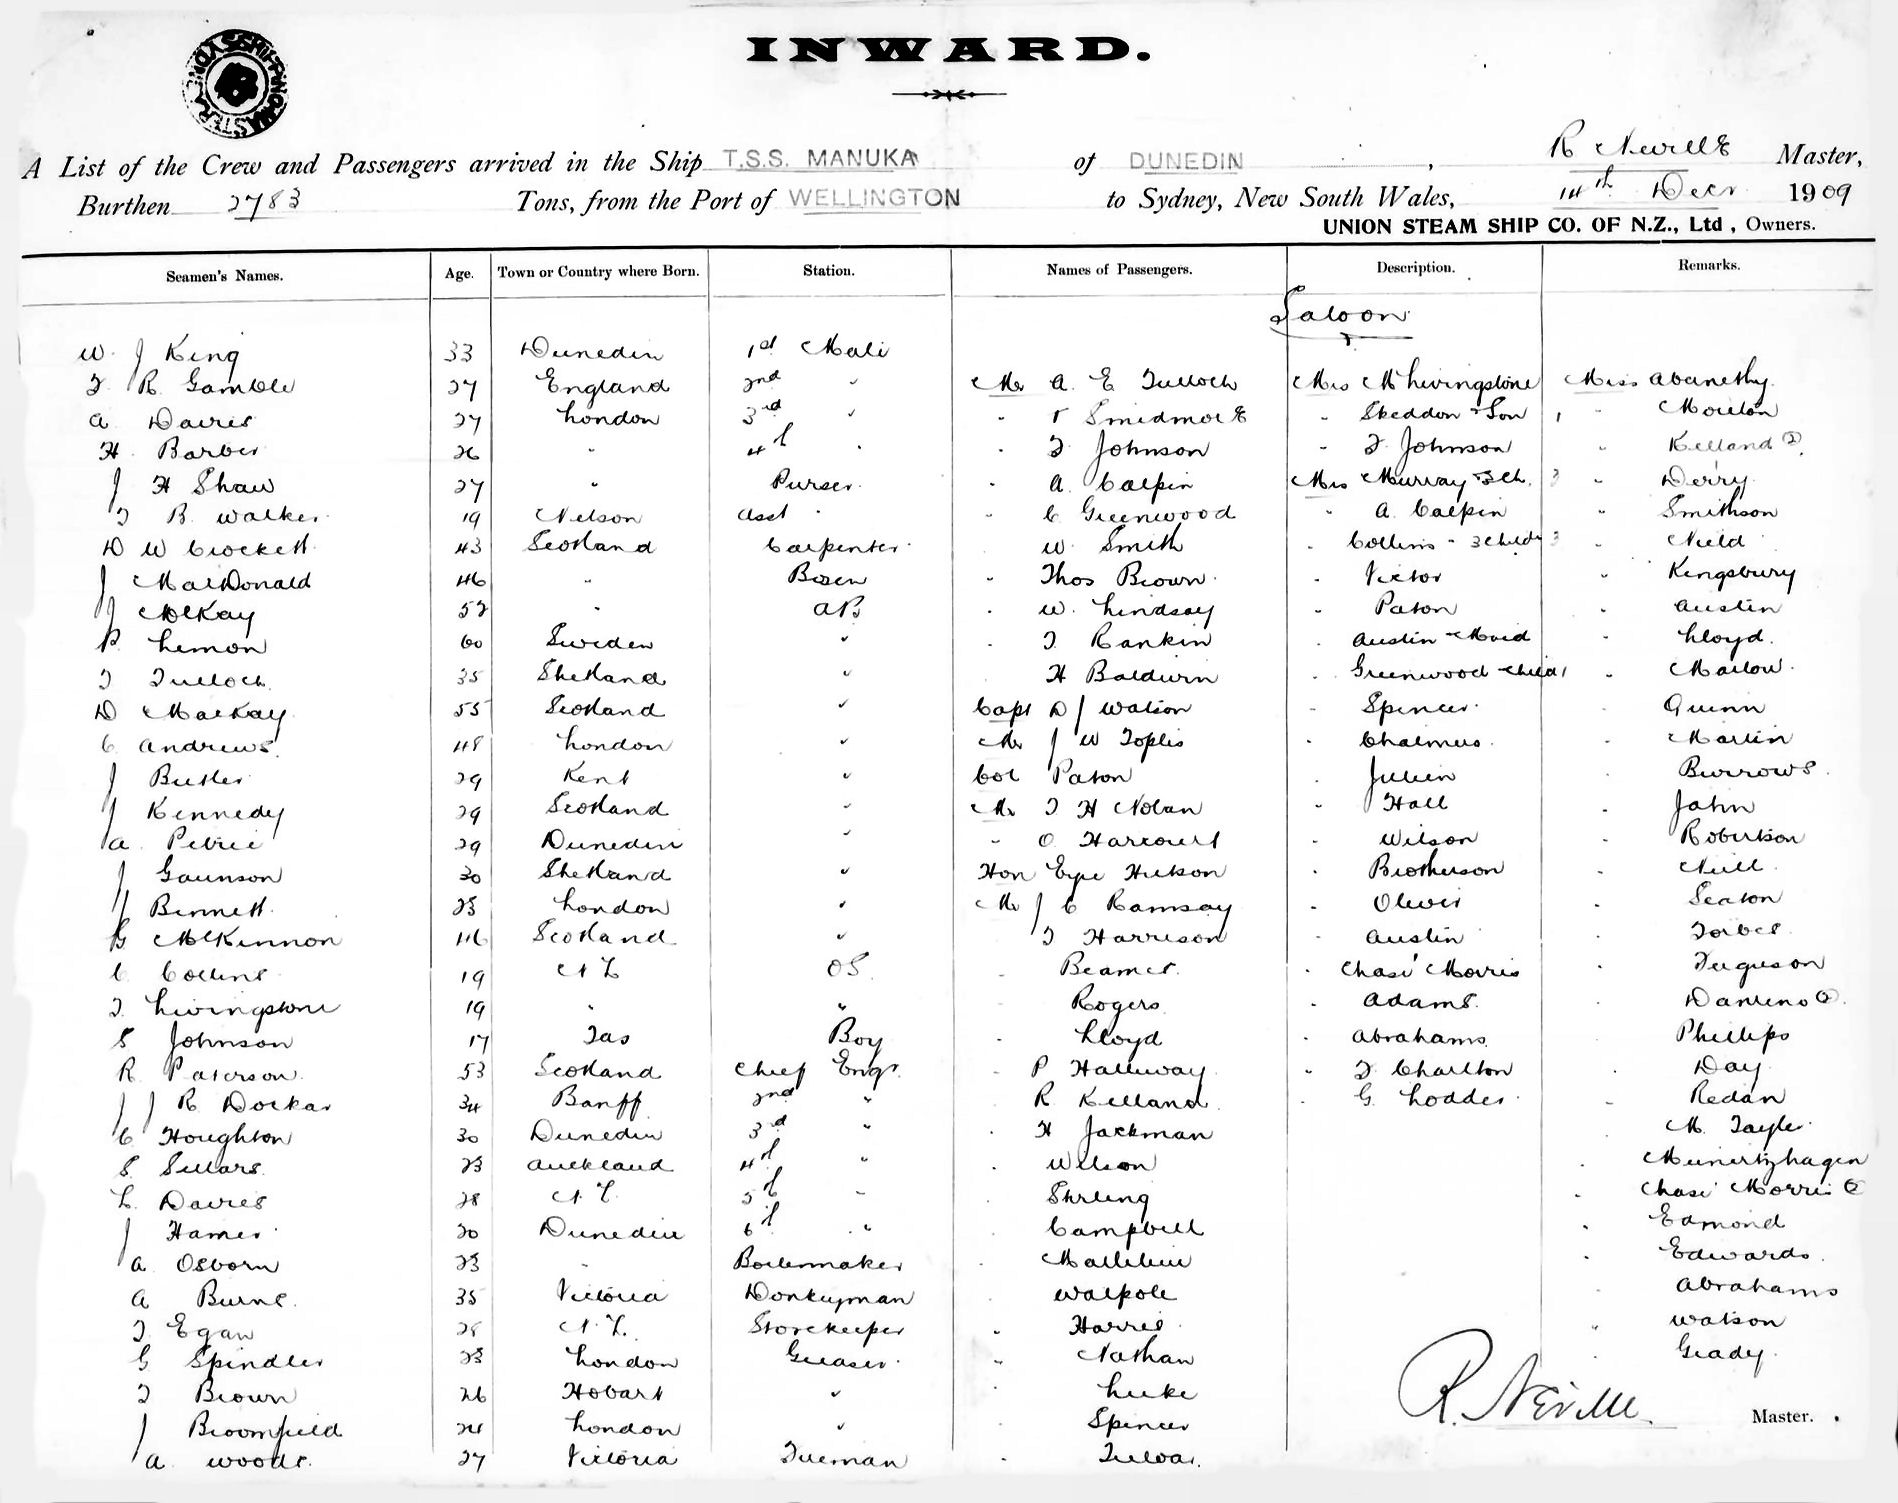 INWARD.
A List of the Crew and Passengers arrived in the Ship T.S.S. MANUKA of DUNEDIN, R Neville Master,
Burthen 2783 Tons, from the Port of WELLINGTON to Sydney, New South Wales, 14th Decr 1909
UNION STEAM SHIP CO. OF N.Z., Ltd, Owners.
Seamen's Names. Age. Town or Country where Born. Station. Names of Passengers. Description. Remarks.
Saloon
W. J King 33 Dunedin 1st Mate
F. R. Gamble 27 England 2nd " Mr A. E Tulloch Mrs McLivingstone Miss Abanethy
A Davies 27 London 3rd " " Smidmore " Skeddon & Son 1 " Moulton
H. Barber 26 " 4th " " F. Johnson " F. Johnson " Kelland (2)
J H Shaw 27 " Purser " A. Calpin Mrs Murray 3 ch. 3 " Derry
F B. Walker 19 Nelson Asst " " C Greenwood " A. Calpin " Smithson
D W Crockett 43 Scotland Carpenter W. Smith " Collins - 3 child 3 " Nield
J MacDonald 46 " Bosen " Thos Brown " Victor " Kingsbury
J McKay 52 " AB " W. Lindsay " Paton " Austin
P. Lemon 60 Sweden " " T. Rankin " Austin & Maid " Lloyd
T Tulloch 35 Shetland " H Baldwin " Greenwood & child 1 " Marlow
D MacKay 55 Scotland " Capt D J Watson " Spencer " Quinn
C. Andrews 48 London " Mr J W Toplis " Chalmers " Martin
J Butler 29 Kent " Col Paton " Julien " Burrows
J Kennedy 29 Scotland " Mr T H Nolan " Hall " John
A. Petrie 29 Dunedin " " O. Harcourt " Wilson " Robertson
J Gaunson 30 Shetland " Hon Eye Hutson " Brotherson " Neill
J Bennett 23 London " Mr J C Ramsay " Oliver " Seaton
G McKinnon 46 Scotland " T Harrison " Austin " Forbes
C. Collins 19 N Z OS " Beamer " Chase Morris " Ferguson
T. Livingstone 19 " " " Rogers " Adams " (2)
S Johnson 17 Tas Boy " Lloyd " Abrahams " Phillips
R. Paterson 53 Scotland Chief Engr " P Halliway " F Charlton Day
J J R Dockar 34 Banff 2nd " " R. Kelland " G. Lodder " Redan
C. Houghton 30 Dunedin 3rd " " H Jackman M. Tayler
S. Sellars 23 Auckland 4th " " Wilson " Meinertzhagen
L. Davies 28 N. Z. 5th " " Stirling " Chase Morris (2)
J Hamer 20 Dunedin 6th " " Campbell " Edmond
A Osborn 23 " Boilermaker " " Edwards
A Burns 35 Victoria Donkeyman " Walpole Abrahams
T. Egan 28 N. Z. Storekeeper " Harris " Watson
G Spindler 23 London Greaser " Nathan " Grady
T Brown 26 Hobart " " Luke
J Broomfield 24 London " Spencer R. Neville Master.
A Woods 27 Victoria Fireman "